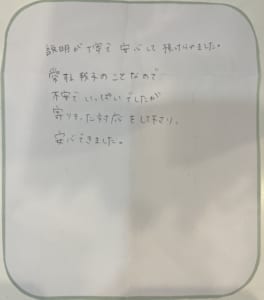 説明が丁寧で 安心して 預けられました。
我子のことなので
不安でいっぱいでしたが
寄りそった対応 をして下さり、
安心できました。